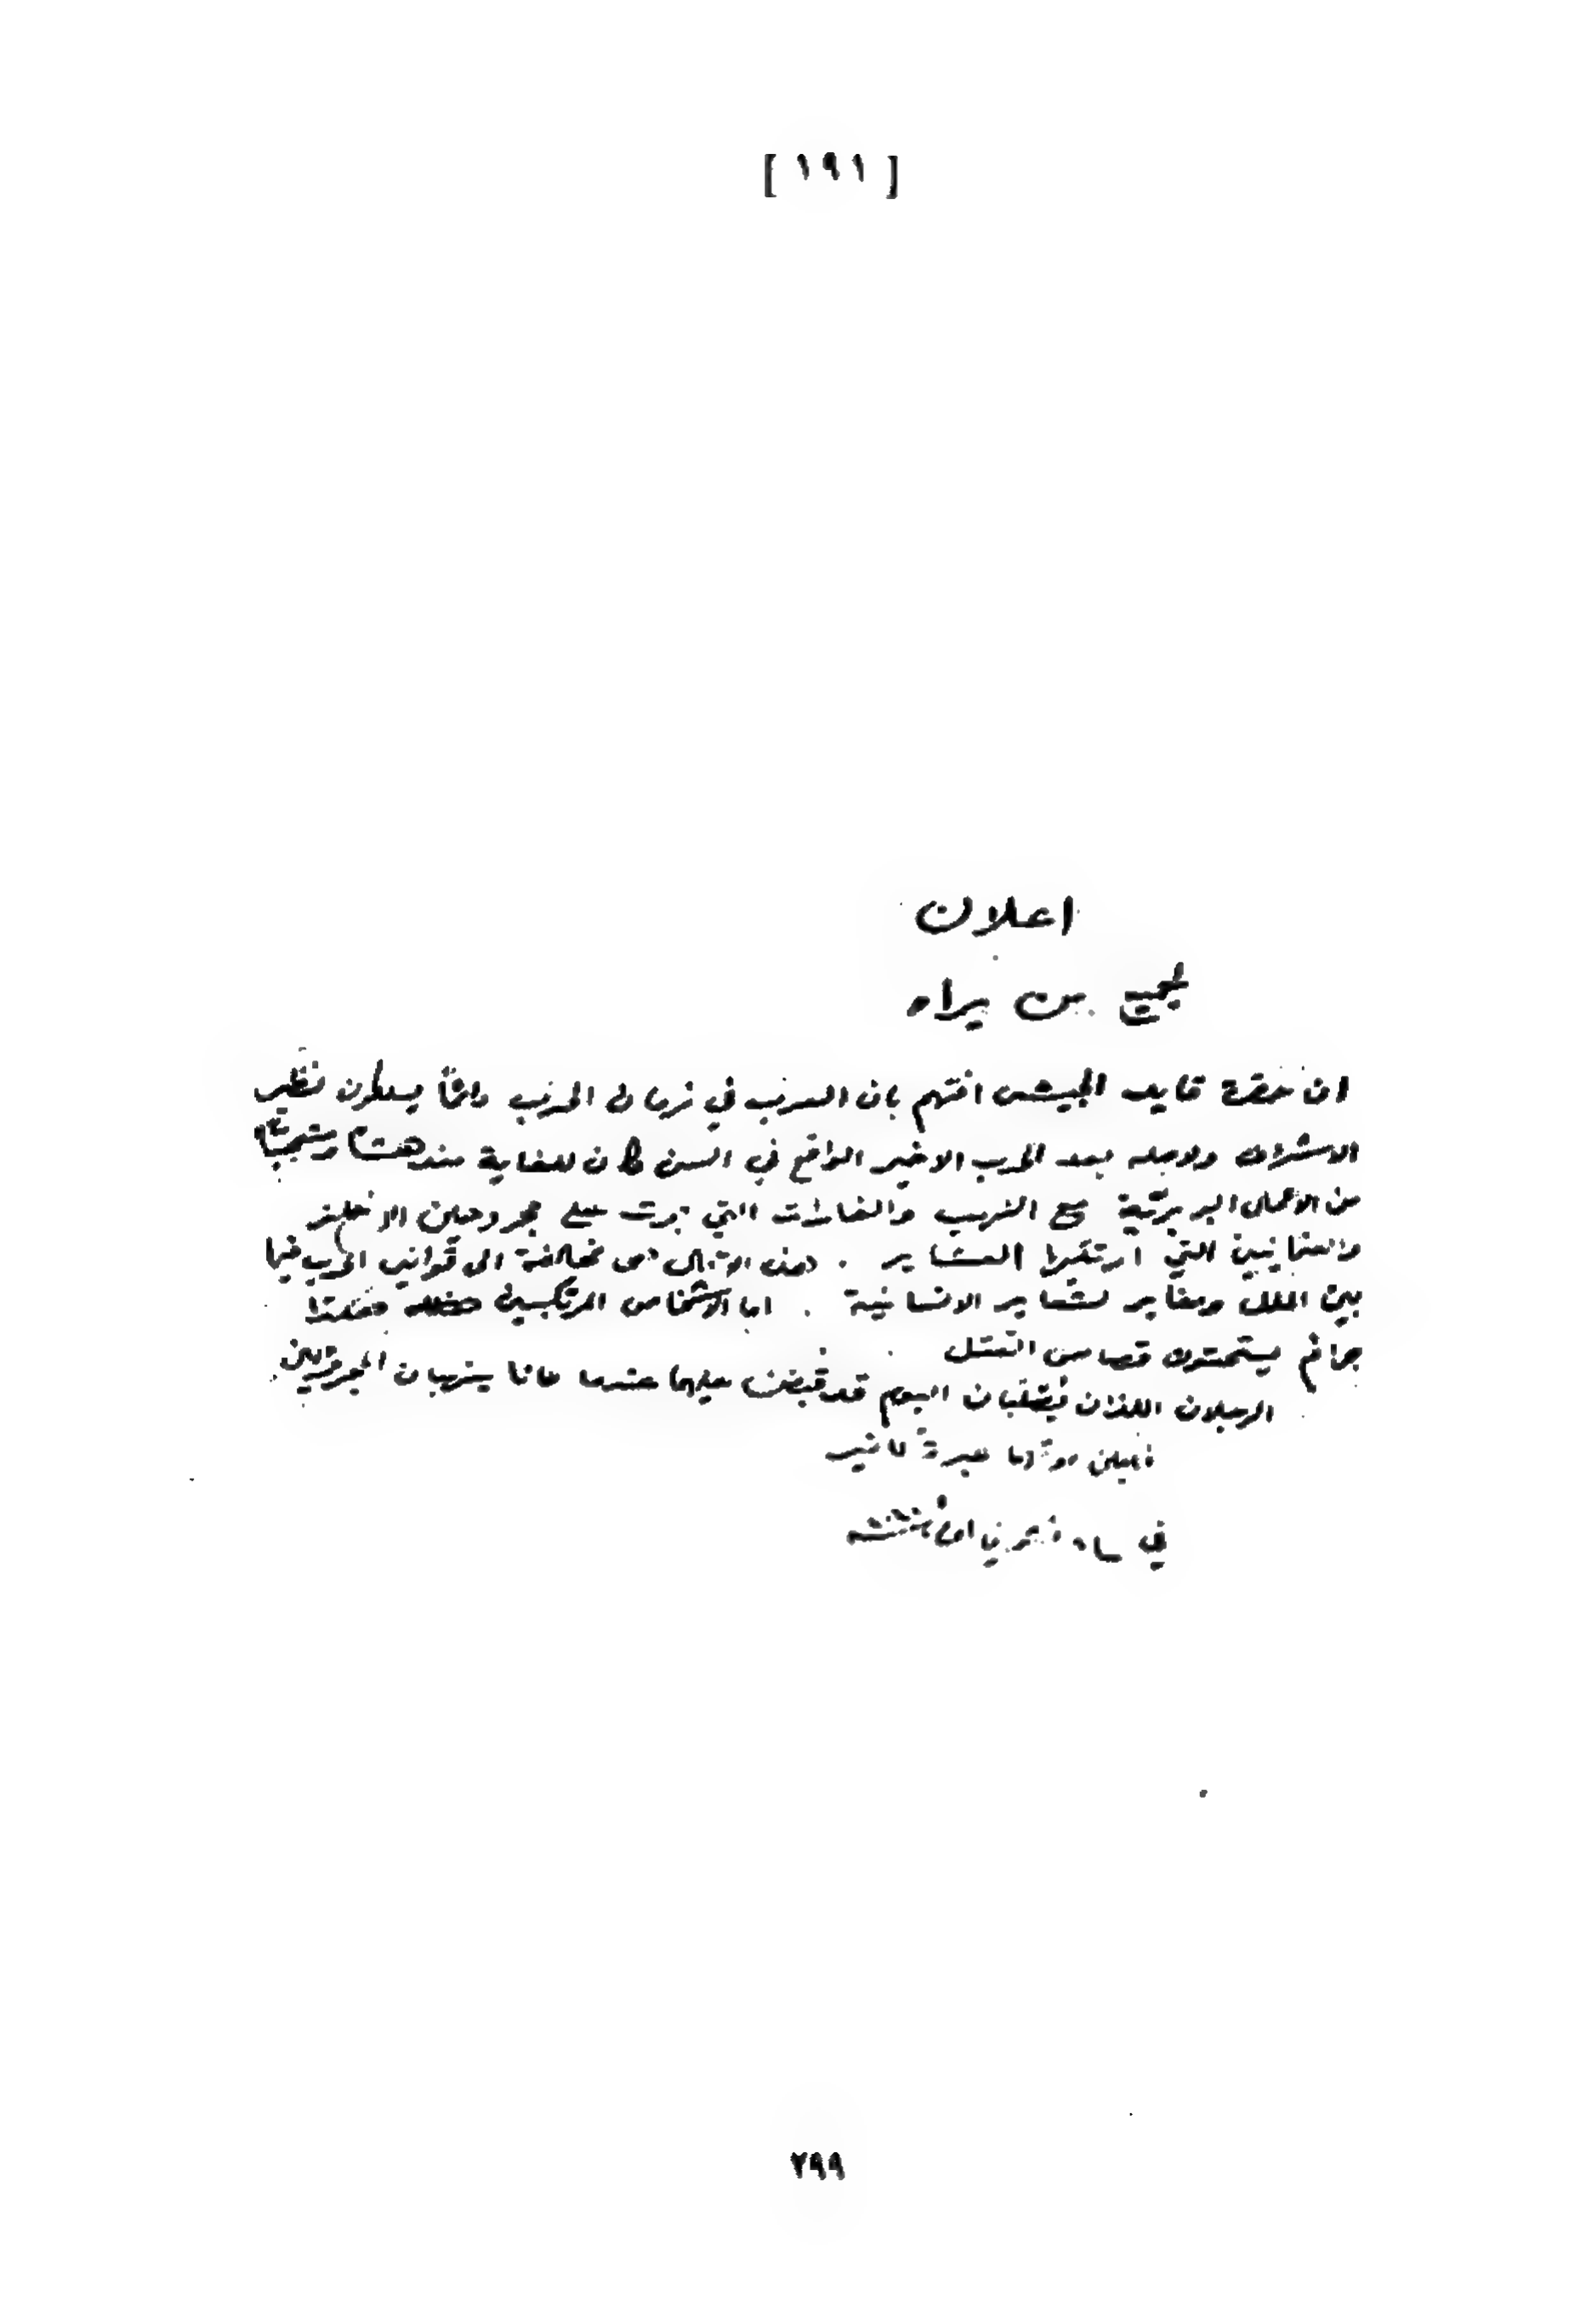 [ ١٩١ ]
اعلان
لجميع من يراه
ان حضرة قايد الجيش افتهم بان العرب في زمان الحرب دائماً يسلكون نظير
الاشراف ولاجله بعد الحرب الاخير الواقع في السن كان للغاية مندهشاً
من الاعمال البربريّة مع النهب والغارات التي جرت على مجروحين الانكليز
والعثمانيين التي ارتكبها العشاير . مخالفة الى قوانين الحرب فيما
بين الملل ومغاير لشعاير الانسانية . اما الاشخاص المرتكبين
جرائم يستحقون قصاص القتل
الرجلان اللذان اليوم قد قبض عليهما عندما كانا ينهبان المجروحين
عبرة للغير
في
٢٩٩